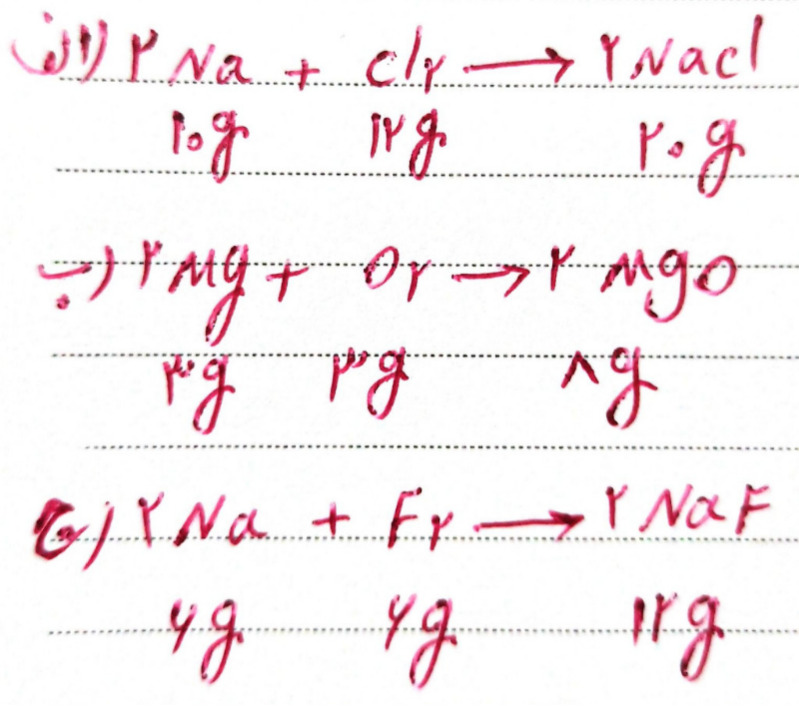 الف) ۲Na + Cl۲ → ۲NaCl
۱۰g ۱۲g ۲۰g
ب) ۲Mg + O۲ → ۲MgO
۳g ۳g ۸g
ج) ۲Na + F۲ → ۲NaF
۶g ۶g ۱۲g